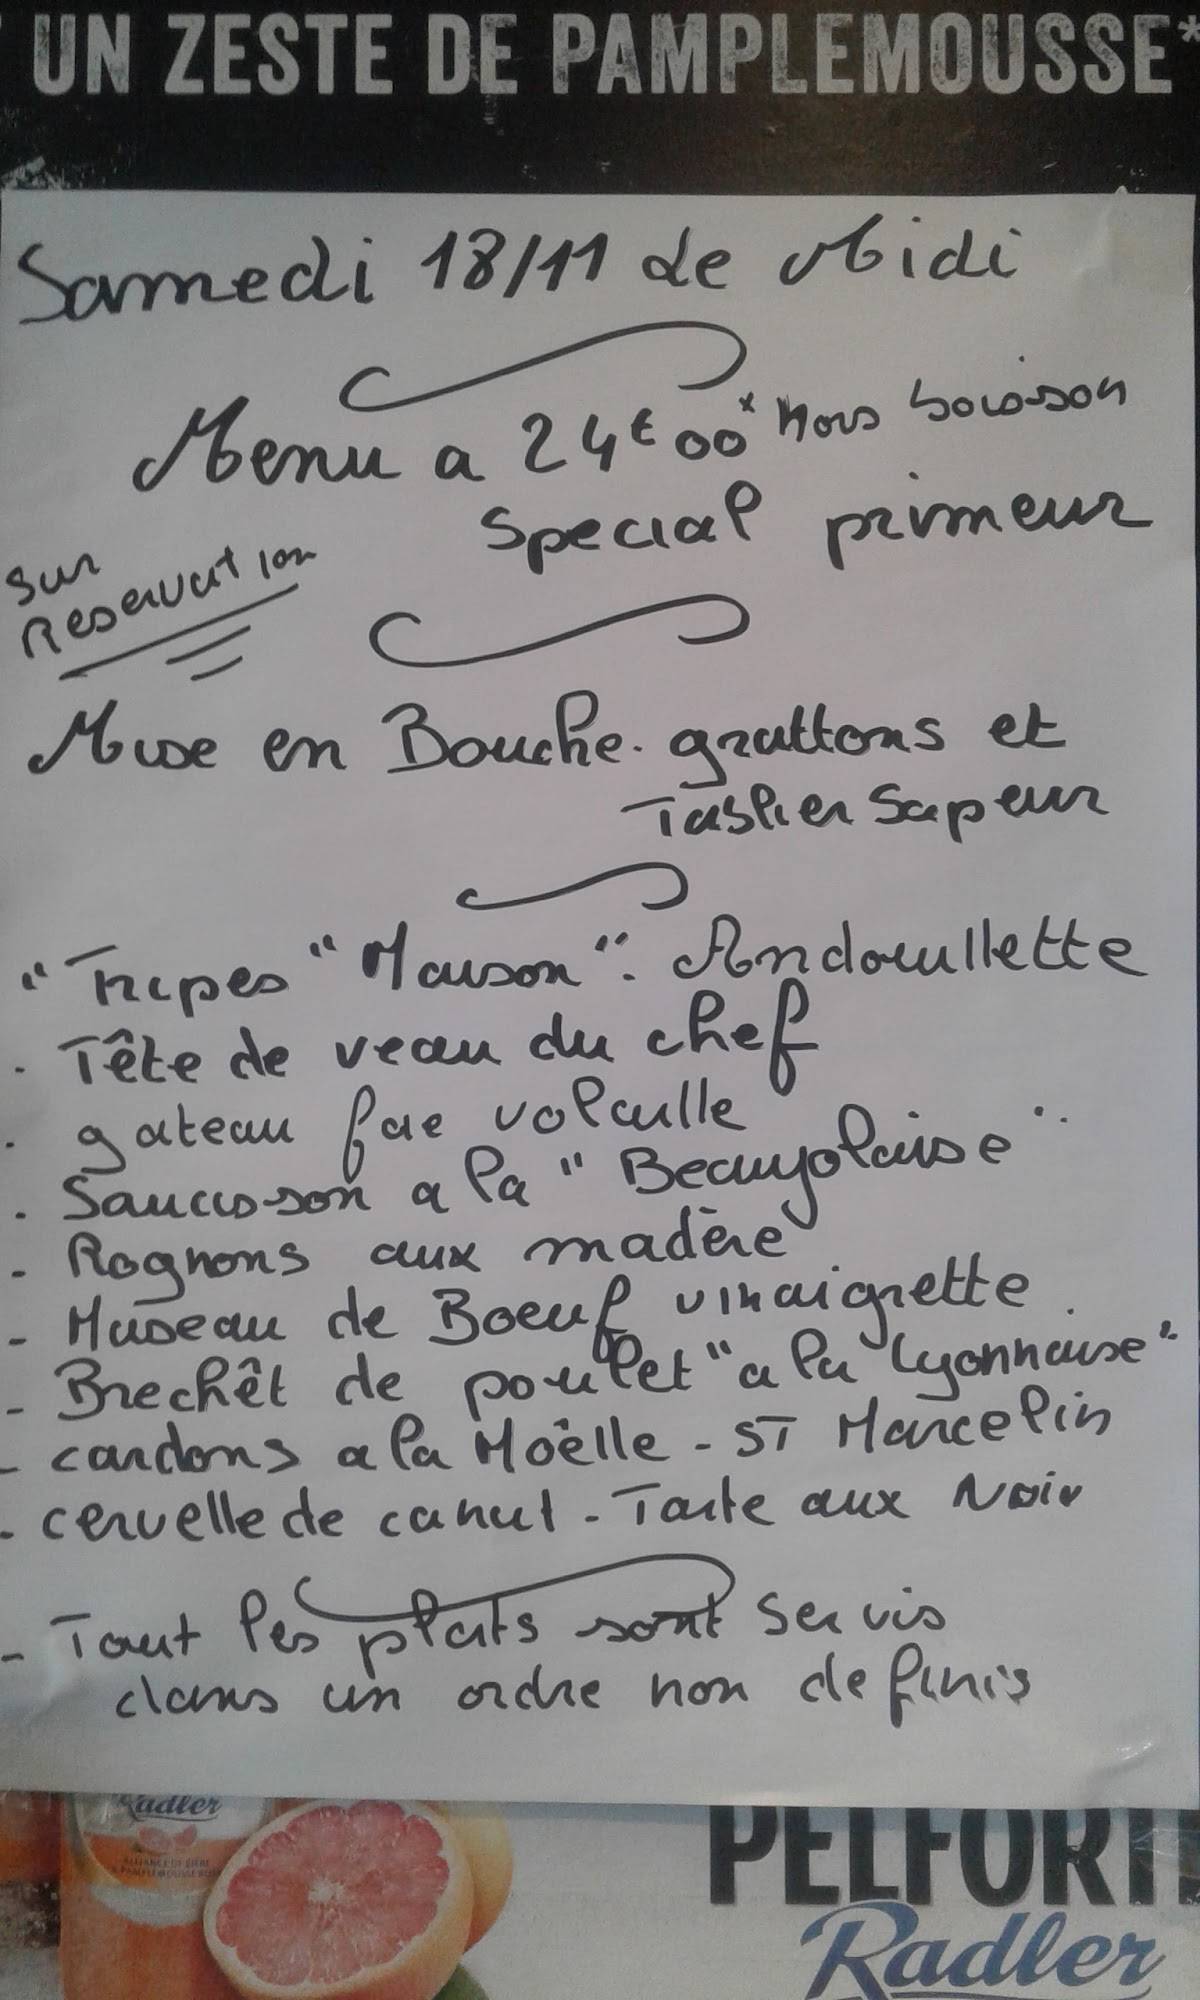 UN ZESTE DE PAMPLEMOUSSE*
Samedi 18/11 Le Midi
Menu a 24€00* Hors boisson
Special primeur
Sur
Reservation
Mise en Bouche. grattons et
Tablier Sapeur
"Tripes "Maison". Andouillette
. Tête de veau du chef
. gateau foie volaille
. Saucisson a la "Beaujolaise"
- Rognons aux madère
- Museau de Boeuf vinaigrette.
- Brechêt de poulet "a la Lyonnaise"
- cardons a la Moëlle - ST Marcelin
- cervelle de canut - Tarte aux Noix
- Tout les plats sont servis
dans un ordre non definis
Radler
ALLIANCE DE BIÈRE
PELFORT
Radler